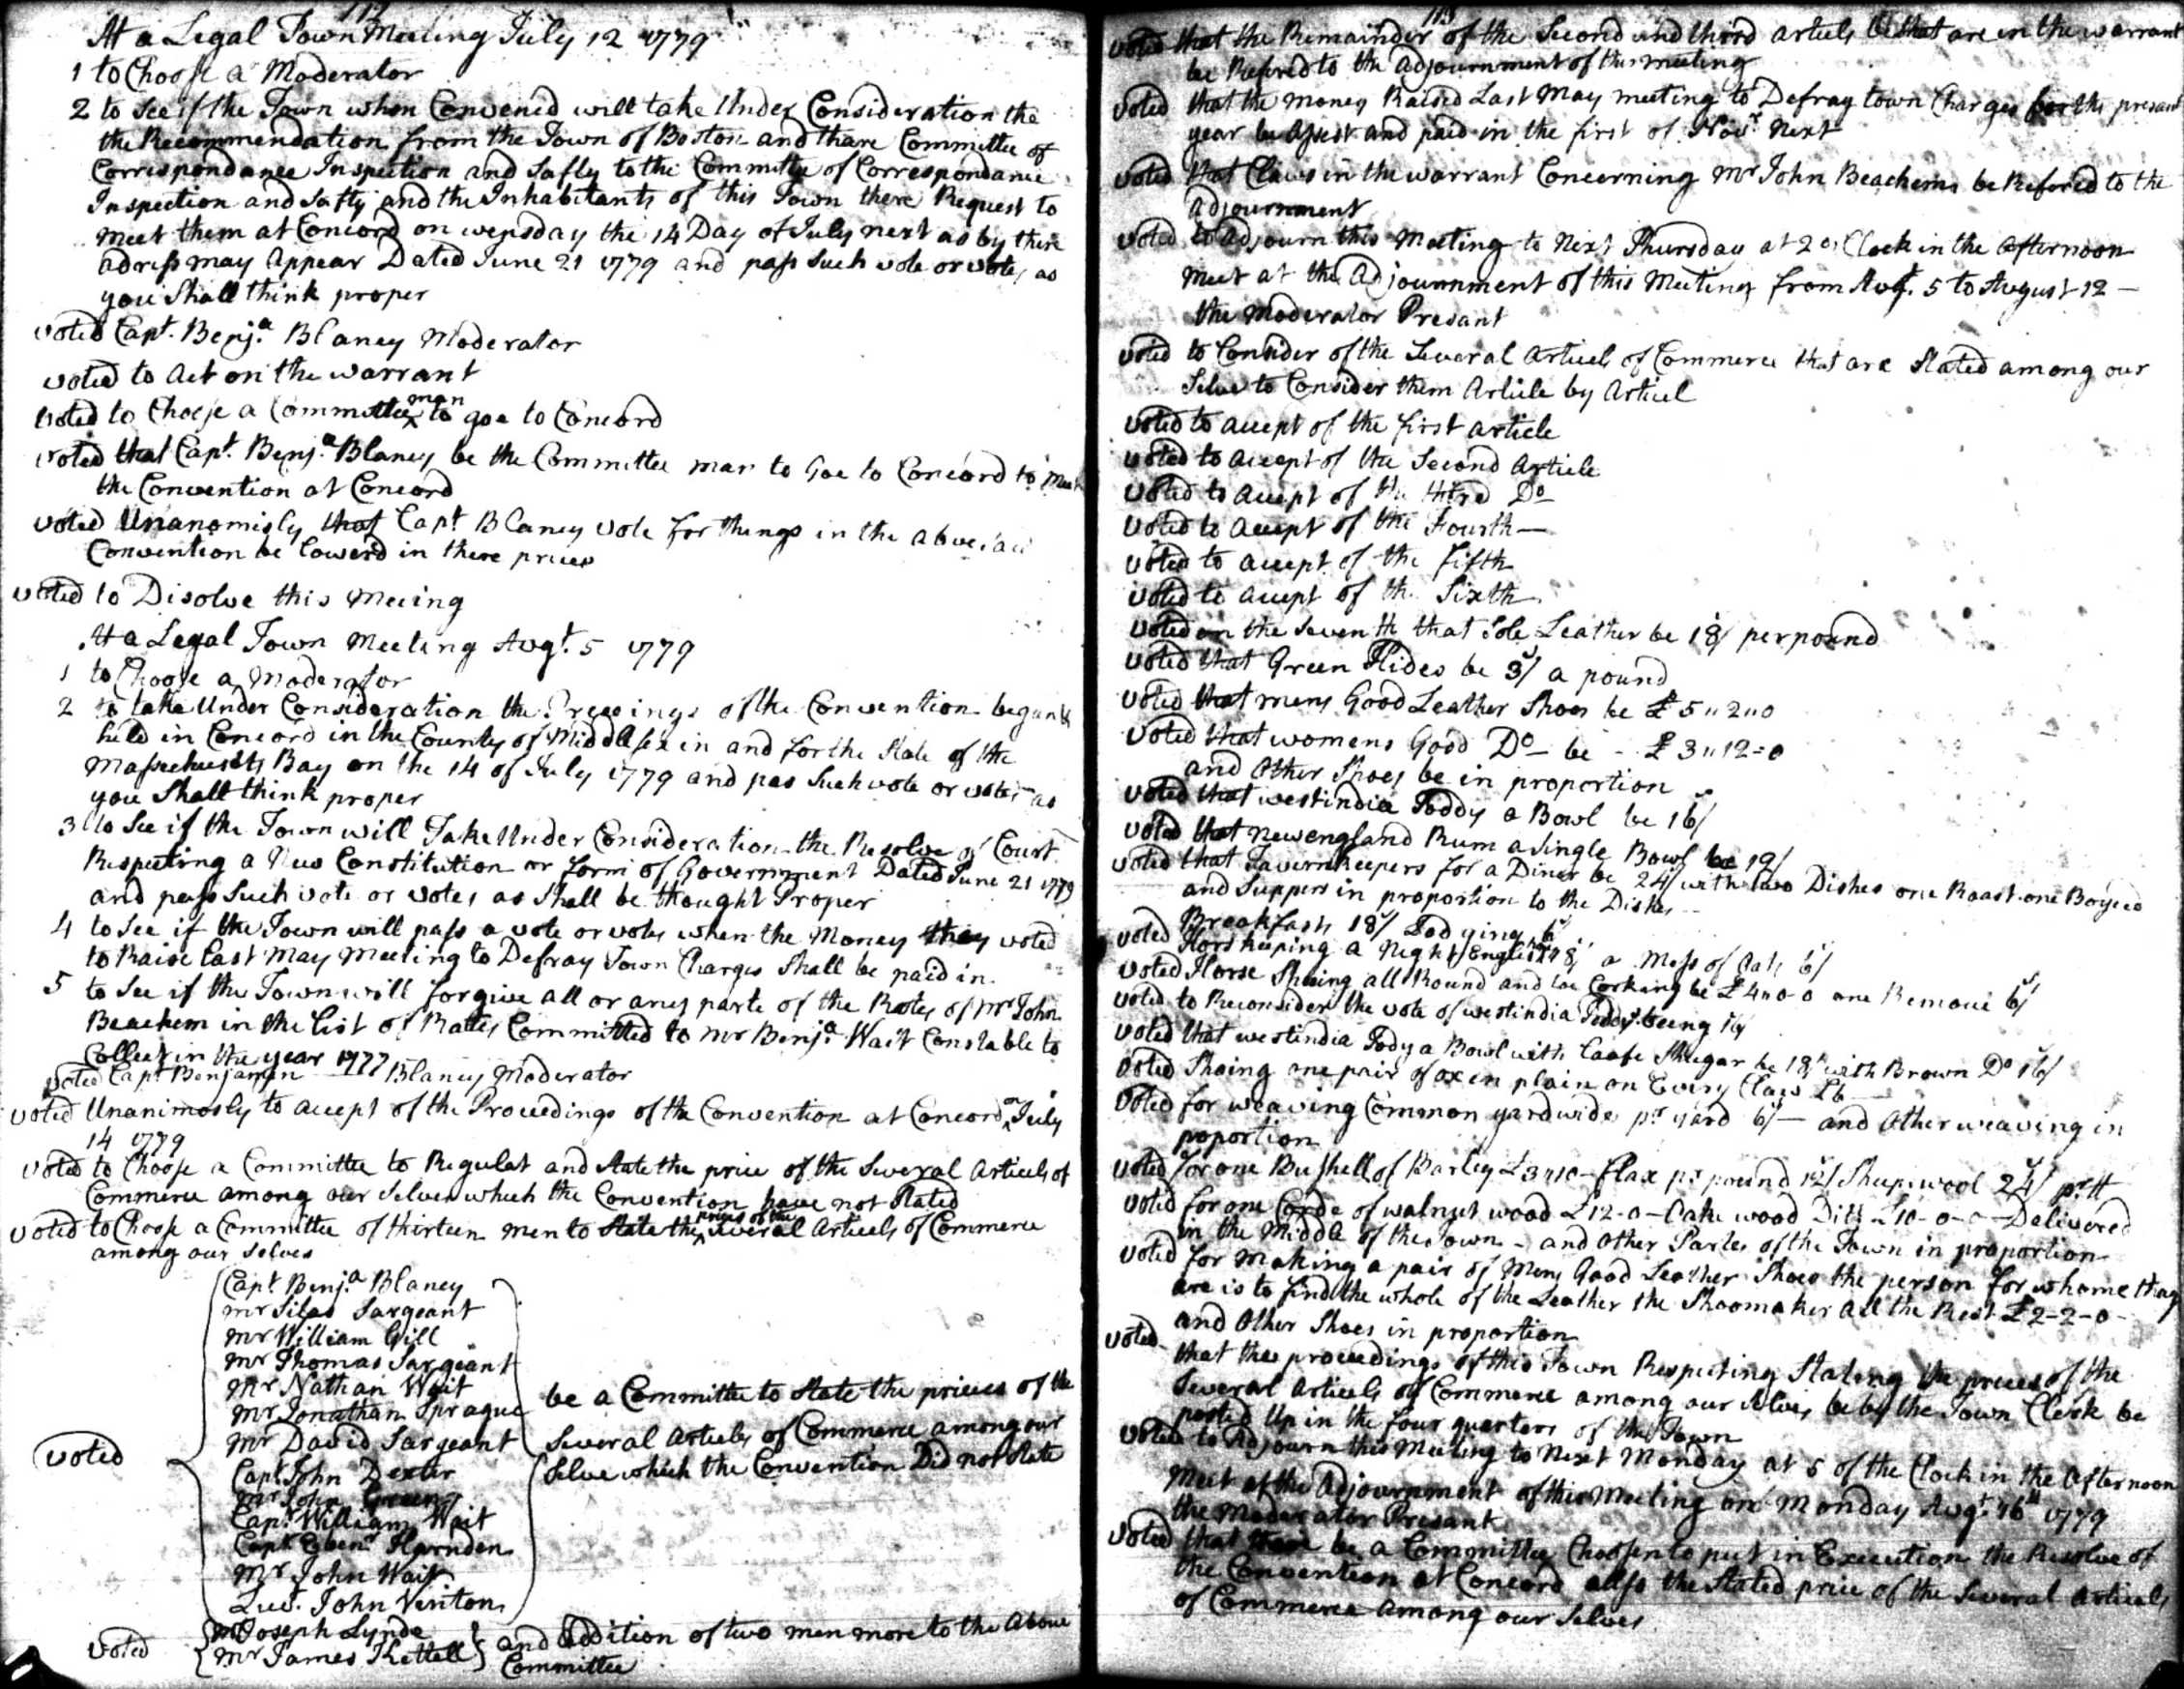 At a Legal Town Meeting July 12 1779
1 to Choose a Moderator
2 to see if the Town when Convened will take Under Consideration the
the Recommendation from the Town of Boston and thare Committee of
Correspondance Inspection and Safty to the Committe of Correspondance
Inspection and Safty and the Inhabitants of this Town there Request to
meet them at Concord on wensday the 14 Day of July next as by there
adress may Appear Dated June 21 1779 and pass Such vote or votes as
you Shall think proper
voted Capt. Benja. Blaney Moderator
voted to Act on the warrant
voted to Choose a Committee man to goe to Concord
voted that Capt. Benja. Blaney be the Committee man to Goe to Concord to Meet
the Convention at Concord
voted Unanomisly that Capt Blaney vote for things in the abovesaid
Convention be Lowerd in there prices
voted to Disolve this Meeing
At a Legal Town Meeting Avgt. 5 1779
1 to Choose a Moderator
2 to take Under Consideration the of the Convention begun &
held in Concord in the County of Middlesex in and for the State of the
Massechusetts Bay on the 14 of July 1779 and pas Such vote or votes as
you Shall think proper
3 to See if the Town will Take Under Consideration the Resolve of Court
Respecting a New Constitution or form of Government Dated June 21 1779
and pass Such vote or votes as Shall be thought Proper
4 to See if the Town will pass a vote or votes when the Money they voted
to Raise Last May Meeting to Defray Town Charges Shall be paid in
5 to See if the Town will forgive all or any parte of the Rates of Mr John
Beachem in the List of Rates Committed to Mr Benja. Wait Constable to
Collect in the year 1777
voted Capt Benjamin Blaney Moderator
voted Unanimosly to accept of the Proceedings of the Convention at Concord on July
14 1779
voted to Choose a Committee to Regulat and State the price of the Several Articels of
Commerce among our Selves which the Convention have not Stated
voted to Choose a Committee of thirteen men to State the prices of the Several Articels of Commerce
among our Selves
Capt Benja. Blaney
Mr Silas Sargeant
Mr William Gill
Mr Thomas Sargeant
Mr Nathan Wait
Mr Jonathan Sprague
Mr David Sargeant
voted
Capt John Dexter
Mr John Green
Capt William Wait
Capt Ebenr Harnden
Mr John Wait
Lut. John Vinton
be a Committe to State the prices of the
Several Articels of Commerce among our
Selve which the Convention Did not State
voted
Mr Joseph Lynde
Mr James Kettell
and Addition of two men more to the Above
Committee
voted that the Remainder of the Second and third articels that are in the warrant
be Refered to the Adjournment of this meeting
voted that the money Raised Last May meeting to Defray town Charges for the presant
year be Assest and paid in the first of Novr. Next
voted that Claws in the warrant Concerning Mr John Beachems be Refored to the
Adjournment
voted to Adjourn this Meeting to Next Thursday at 2 o,Clock in the Afternoon
Meet at the Adjournment of this Meeting from Avgt. 5 to Avgust 12 —
the Moderator Presant
voted to Consider of the Several Articels of Commerce that are Stated among our
Selve to Consider them Article by Articel
voted to accept of the first article
voted to accept of the Second Article
voted to accept of the third Do
voted to accept of the Fourth —
voted to accept of the fifth
voted to accept of the Sixth
voted on the Seventh that Sole Leather be 18/ per pound
voted that Green Hides be 3/ a pound
voted that mens Good Leather Shoes be £ 5 " 2 " 0
voted that womens Good Do — be - £ 3 " 12 = 0
and Other Shoes be in proportion
voted that westindia Toddy a Bowl be 16/
voted that newengland Rum a Single Bowl be 12/
voted that Tavernkeepers for a Diner be 24/ with two Dishes one Roast one Boyled
and Suppers in proportion to the Dishes
voted Breakfasts 18/ Lodging 6/
Hors keeping a Night a Mess of Oats 6/
voted Horse Shoing all Round and toe Corking be £ 4 " 0 - 0 one Remove 6/
voted to Reconsider the vote of westindia Toddy being 16/
voted that westindia Tody a Bowl with Loafe Shugar be 18/ with Brown Do 16/
voted Shoing one pair of oxen plain on Every Claw £6
voted for weaving Common yardwide pr yard 6/ — and Other weaving in
poportion
voted for one Bushell of Barley £3 " 10 — Flax pr pound 12/ Sheepswool 24/ pr lb
voted for one Corde of walnut wood £12-0 — Oake wood Ditt £10-0-0 — Delivered
in the Middle of the Town - and Other Partes of the Town in proportion
voted for Making a pair of Mens Good Leather Shoes the person for whome they
are is to find the whole of the Leather the Shoomaker all the Rest £ 2-2-0 -
and Other Shoes in proportion
voted that the proceedings of this Town Respecting Stateing the prices of the
Several Articels of Commerce among our Selves be by the Town Clerk be
posted Up in the four quarters of the Town
voted to Adjourn this Meeting to Next Monday at 5 of the Clock in the Afternoon
Meet at the Adjournment of this Meeting on Monday Avgt. 16th 1779
the Moderator Presant
voted that be a Committee Choosen to put in Execution the Resolve of
the Convention at Concord allso the Stated price of the Several Articels
of Commerce among our Selves